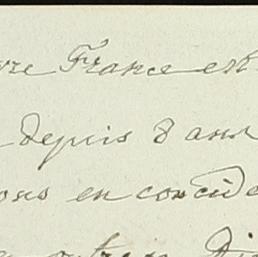 vre France est
depuis 8 ans
ons en concide
outre Di